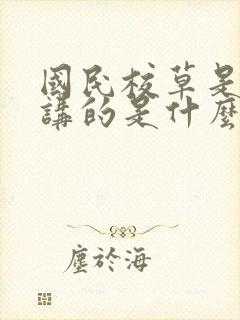 國民校草是
講的是什麼
塵於海